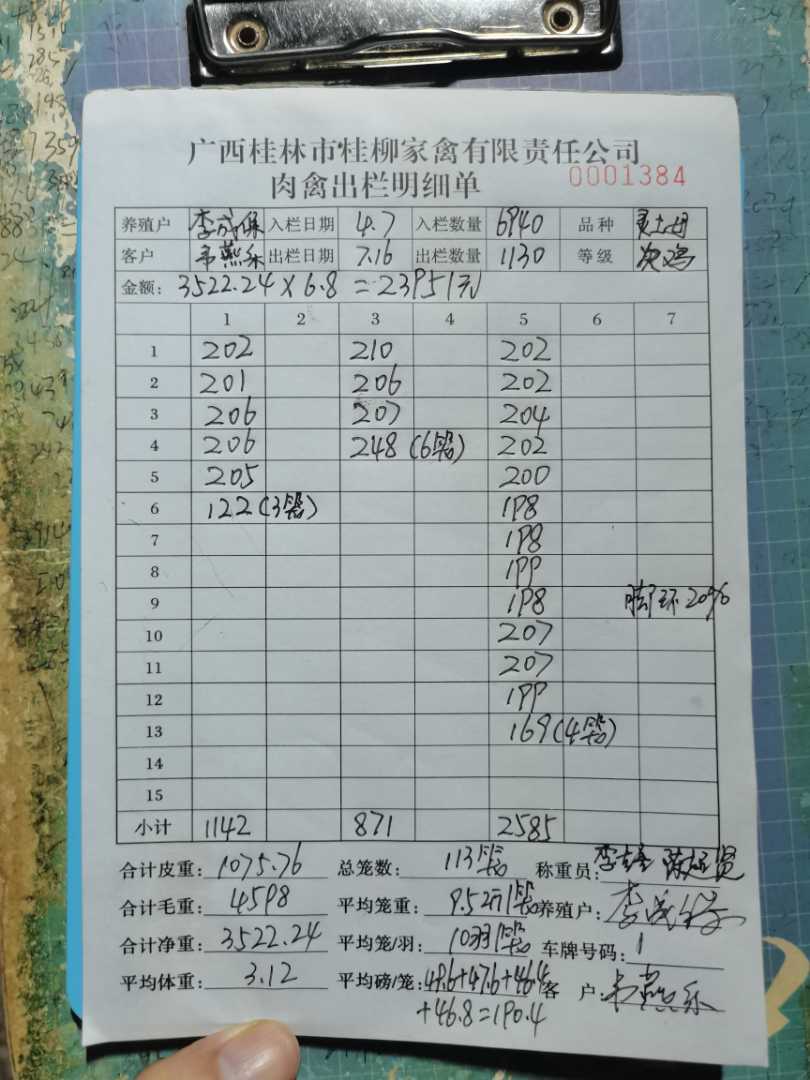 广西桂林市桂柳家禽有限责任公司
肉禽出栏明细单 0001384
养殖户 李成保 入栏日期 4.7 入栏数量 6940 品种
客户 韦燕乐 出栏日期 7.16 出栏数量 1130 等级 次鸡
金额: 3522.24×6.8=23951元
1 2 3 4 5 6 7
1 202 210 202
2 201 206 202
3 206 207 204
4 206 248(6笼) 202
5 205 200
6 122(3笼) 198
7 198
8 199
9 198 脚环20%
10 207
11 207
12 199
13 169(4笼)
14
15
小计 1142 871 2585
合计皮重: 1075.76 总笼数: 113笼 称重员:
合计毛重: 4598 平均笼重: 9.52 养殖户: 李成保
合计净重: 3522.24 平均笼/羽: 10羽/笼 车牌号码: 1
平均体重: 3.12 平均磅/笼: 48.6+47.6+46.4 客 户: 韦燕乐
+46.8=190.4